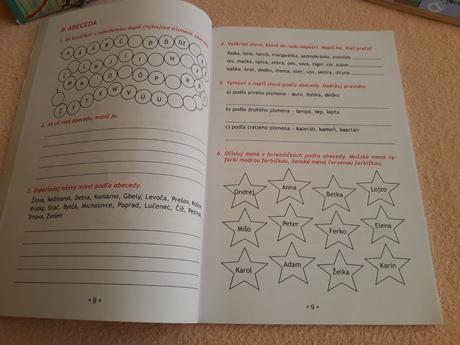 ABECEDA
1. Do korálikov v náhrdelníku dopíš chýbajúce písmená abecedy.
A Á Ä B C D Ď DZ
2. Ak už vieš abecedu, napíš ju.
3. Usporiadaj názvy miest podľa abecedy.
Žilina, Kežmarok, Detva, Komárno, Gbely, Levoča, Prešov, Košice,
Vrútky, Sliač, Bytča, Michalovce, Poprad, Lučenec, Číž, Pezinok,
Trnava, Zvolen
• 8 •
4. Vyškrtni slovo, ktoré do radu nepatrí. Napíš ho. Vieš prečo?
fialka, ľalia, narcis, margarétka, sedmokráska, zvonček
lev, mačka, opica, zebra, pes, sova, tiger, vyr, zubor
babka, brat, dedko, mama, otec, ujo, sestra, stryná
5. Vymysli a napíš slová podľa abecedy. Dodržuj pravidlo:
a) podľa prvého písmena – auto, bábka, dedko
b) podľa druhého písmena – lampa, lep, lopta
c) podľa tretieho písmena – kaleráb, kameň, kapitán
6. Očísluj mená v hviezdičkách podľa abecedy. Mužské mená vy-
farbi modrou farbičkou, ženské mená červenou farbičkou.
Ondrej Anna Betka Lojzo
Mišo Peter Ferko Elena
Karol Adam Želka Karin
• 9 •